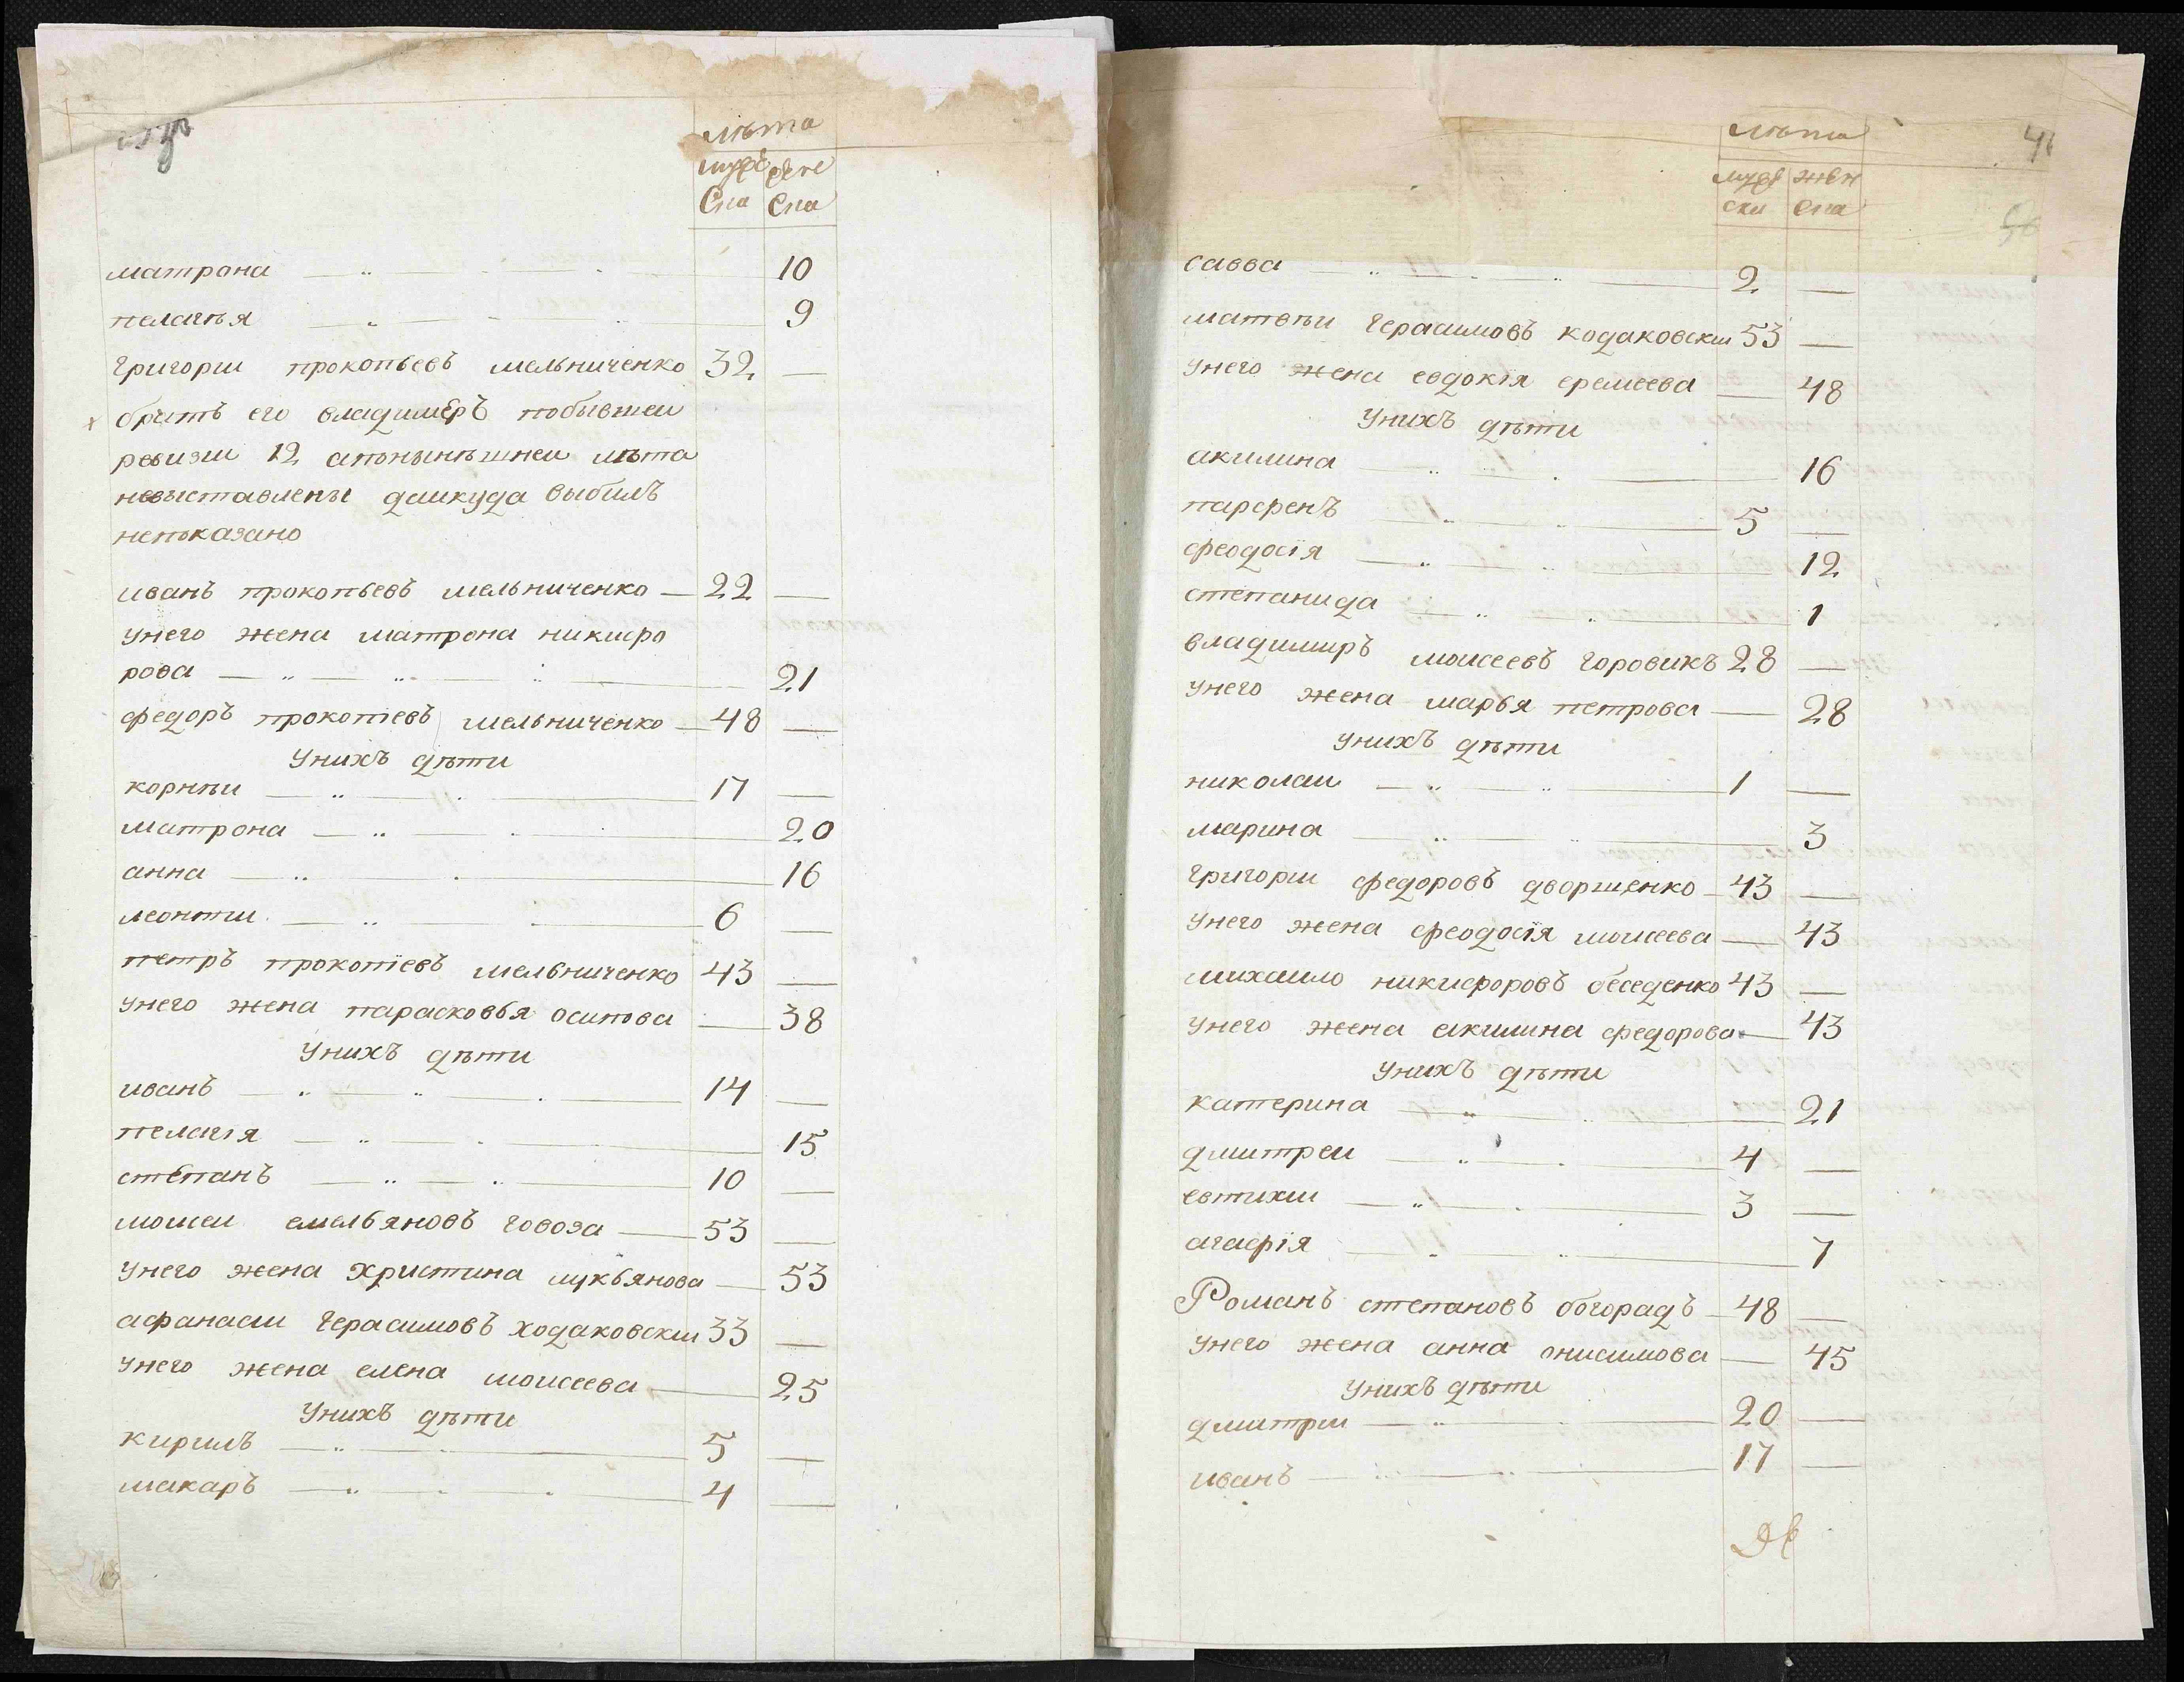 лѣта
муже жене
ска ска
матрона 10
пелагѣя 9
григорiи прокопьевъ мельниченко 32 —
братъ его владимеръ побывшеи
ревизiи 12 апонынѣшнеи лѣта
невыставлены даикуда выбилъ
непоказано
иванъ прокопьевъ мельниченко — 22 —
унего жена матрона никифо
рова — 21
федоръ прокопiевъ мельниченко — 48 —
Унихъ дѣти
корнѣи — 17 —
матрона — 20
анна — 16
леонтiи — 6 —
петръ прокопiевъ мельниченко 43 —
унего жена парасковья осипова — 38
Унихъ дѣти
иванъ — 14 —
пелагiя — 15
степанъ — 10 —
моисеи емельяновъ говоза — 53 —
унего жена христина лукьянова — 53
афанасiи герасимовъ ходаковскiи 33 —
унего жена елена моисеева — 25
Унихъ дѣти
кирилъ — 5 —
макаръ — 4 —
лѣта
муже жен
ска ска
савва — 2 —
матвѣи герасимовъ кодаковскiи 53 —
унего жена евдокiя еремеева — 48
Унихъ дѣти
акилина — 16
парфенъ — 5 —
феодосiя — 12
степанида — 1
владимиръ моисеевъ горовикъ 28 —
унего жена марья петрова — 28
Унихъ дѣти
николаи — 1 —
марина — 3
григорiи федоровъ дворшенко — 43 —
унего жена феодосiя моисеева — 43
михаило никифоровъ беседенко 43 —
унего жена акилина федорова — 43
Унихъ дѣти
катерина — 21
дмитреи — 4 —
евтихiи — 3 —
агафiя — 7
Романъ степановъ богорадъ — 48 —
унего жена анна онисимова — 45
Унихъ дѣти
дмитрiи — 20 —
иванъ — 17 —